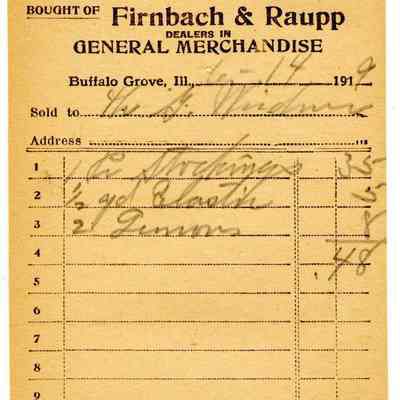 BOUGHT OF Firnbach & Raupp
DEALERS IN
GENERAL MERCHANDISE
Buffalo Grove, Ill., 14 1919
Sold to
Address
1 1 Pr Stockings 35
2 1/2 yd Elastic 5
3 2 Lemons 8
4 .48
5
6
7
8
9